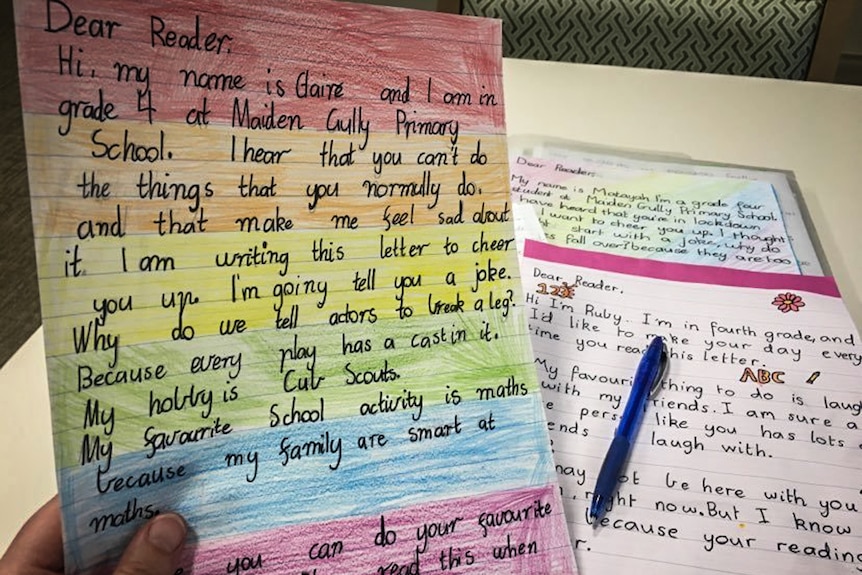 Dear Reader.
Hi, my name is Claire and I am in
grade 4 at Maiden Gully Primary
School. I hear that you can't do
the things that you normully do.
and that make me feel sad about
it. I am writing this letter to cheer
you up. I'm going tell you a joke.
Why do we tell actors to break a leg?
Because every play has a cast in it.
My hobby is Cub Scouts.
My favourite School activity is maths
because my family are smart at
maths.
you can do your favourite
read this when
Dear Reader.
My name is Makayah I'm a grade four
student at Maiden Gully Primary School.
have heard that you're in lockdown
I want to cheer you up. I thought
start with a joke, why do
fall over? because they are too
Dear Reader.
123
Hi I'm Ruby. I'm in fourth grade, and
I'd like to make your day every
time you read this letter.
ABC
My favourite thing to do is laugh
with my friends. I am sure a
person like you has lots
laugh with.
may not be here with you
right now. But I know
because your reading